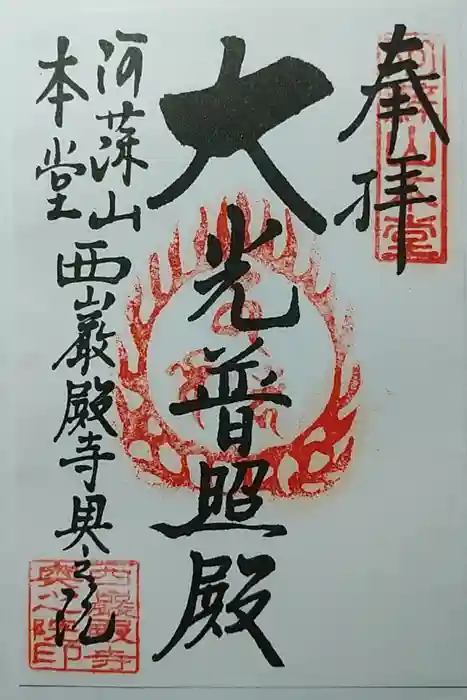 奉拝
阿蘇山本堂
大光普照殿
阿蘇山
本堂
西巌殿寺奥之院
西巌殿寺
奥之院印